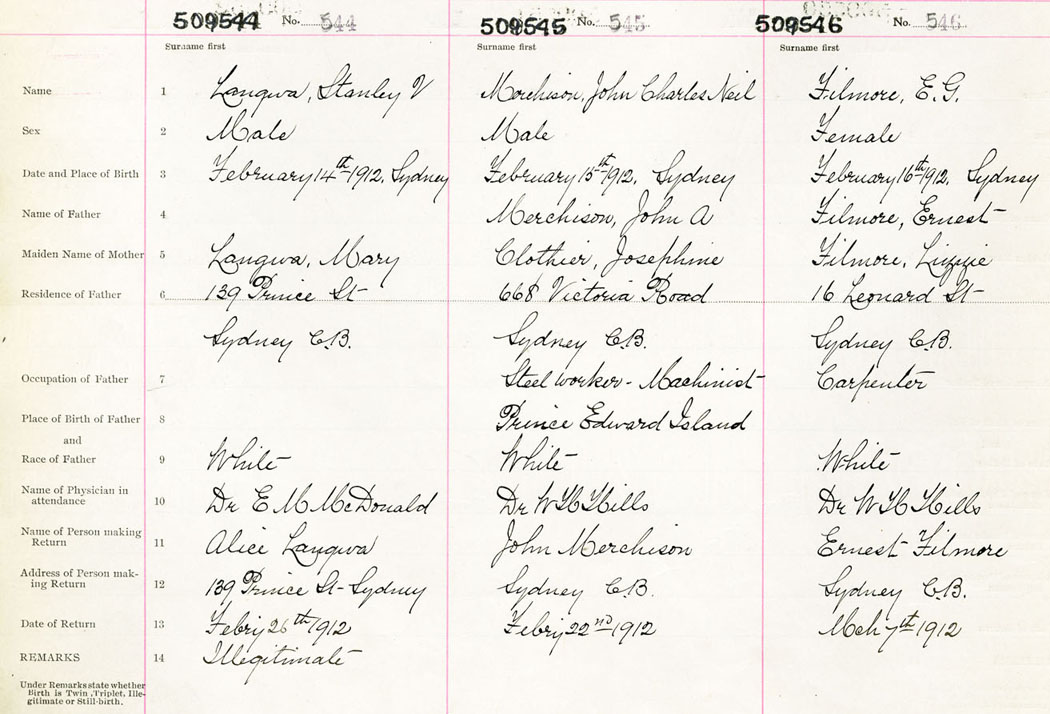 509544 No. 544 509545 No. 545 509546 No. 546
Surname first Surname first Surname first
Name 1 Langwa, Stanley V Merchison, John Charles Neil Filmore, E.G.
Sex 2 Male Male Female
Date and Place of Birth 3 February 14th 1912, Sydney February 15th 1912, Sydney February 16th 1912, Sydney
Name of Father 4 Merchison, John A Filmore, Ernest
Maiden Name of Mother 5 Langwa, Mary Clothier, Josephine Filmore, Lizzie
Residence of Father 6 139 Prince St 668 Victoria Road 16 Leonard St
Sydney C.B. Sydney C.B. Sydney C.B.
Occupation of Father 7 Steel worker - Machinist Carpenter
Place of Birth of Father 8 Prince Edward Island
and
Race of Father 9 White White White
Name of Physician in
attendance 10 Dr E M McDonald Dr W H Hills Dr W H Hills
Name of Person making
Return 11 Alice Langwa John Merchison Ernest Filmore
Address of Person mak-
ing Return 12 139 Prince St - Sydney Sydney C.B. Sydney C.B.
Date of Return 13 Febry 26th 1912 Febry 22nd 1912 Mch 7th 1912
REMARKS 14 Illegitimate
Under Remarks state whether
Birth is Twin, Triplet, Ille-
gitimate or Still-birth.